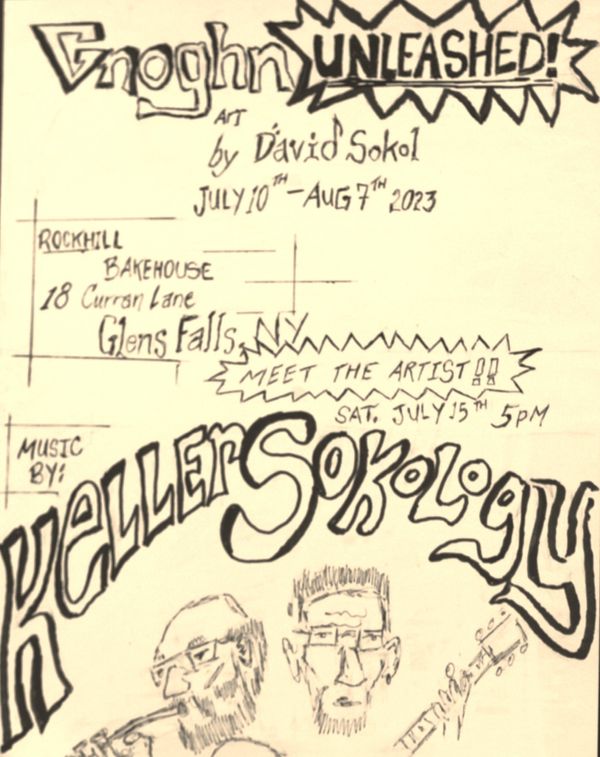 Gnoghn UNLEASHED!
ART
by David Sokol
JULY 10TH - AUG 7TH 2023
ROCKHILL
BAKEHOUSE
18 Curran Lane
Glens Falls, NY
MEET THE ARTIST!!
SAT. JULY 15TH 5PM
MUSIC
BY:
KELLER SOKOLOGY